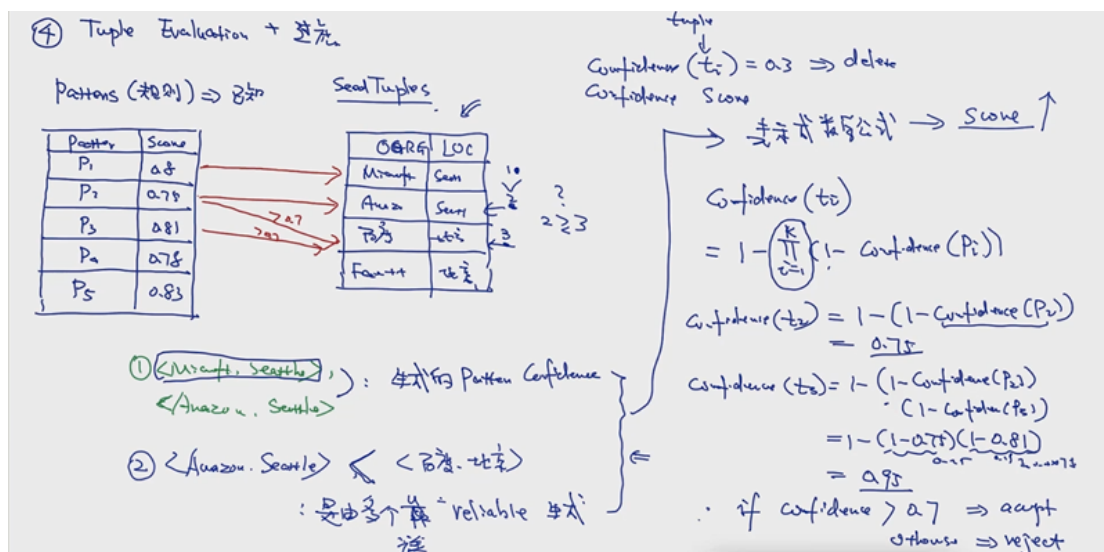 ④ Tuple Evaluation + 过滤
Patterns (规则) ⇒ 已知
Seed Tuples
Pattern Score
P1 0.8
P2 0.75
P3 0.81
P4 0.78
P5 0.83
ORG LOC
Microsoft Sea
Amaz Seatt
百度 北京
北京
>0.7
10
2
3
?
2 ≥ 3
① <Microsoft, Seattle>,
<Amazon, Seattle>
): 生成的 Pattern Confidence
② <Amazon. Seattle> < <百度. 北京>
: 是由多个 靠谱 "reliable 生成
tuple
Confidence (ti) = 0.3 ⇒ delete
Confidence Score
表示成数学公式 → Score ↑
Confidence (ti)
= 1 - ∏ K i=1 (1 - Confidence (Pi))
Confidence (t2) = 1 - (1 - Confidence (P2))
= 0.75
Confidence (t3) = 1 - (1 - Confidence (P2))
· (1 - Confidence (P3))
= 1 - (1 - 0.75)(1 - 0.81)
= 0.95
∴ if confidence > 0.7 ⇒ accept
otherwise ⇒ reject